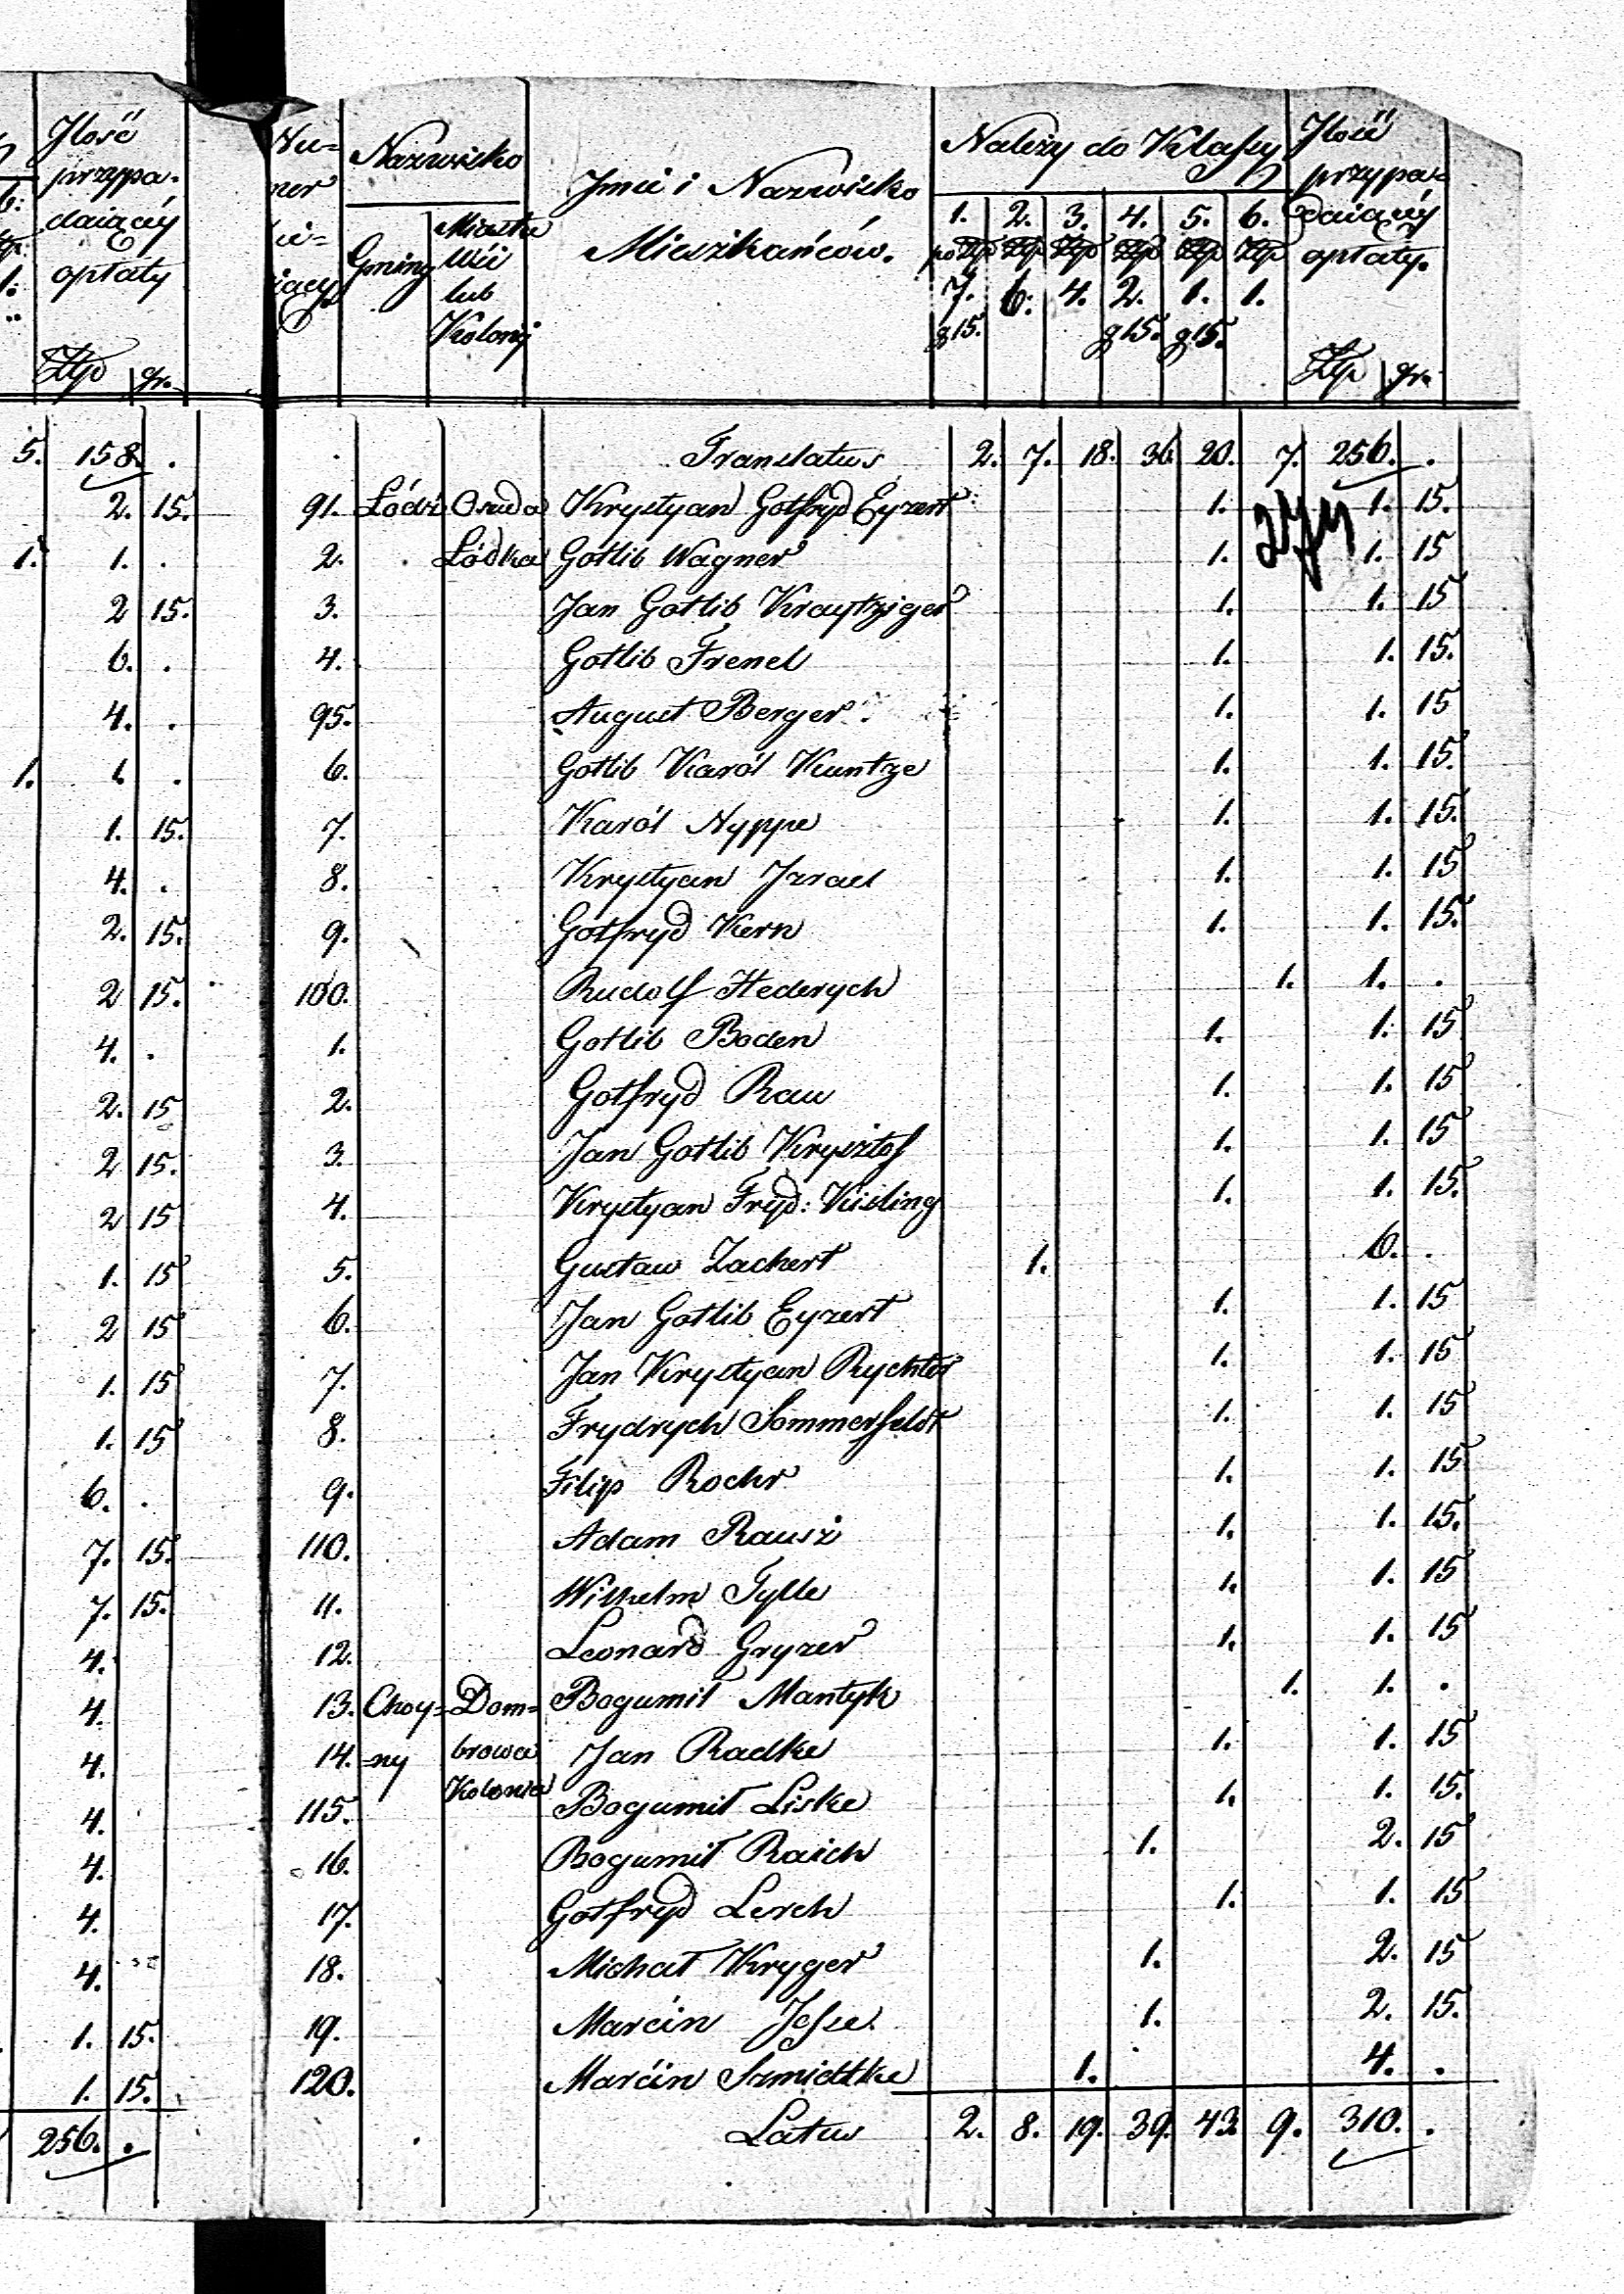 Ilość
przypa-
daiącéy
opłaty
Złp gr.
5. 158. .
2. 15.
1. 1. .
2 15.
6. .
4. .
1. 1. .
1. 15.
4. .
2. 15.
2 15.
4. .
2. 15
2 15.
2 15
1. 15
2 15
1. 15
1. 15
6. .
7. 15.
7. 15.
4.
4.
4.
4.
4.
4.
4.
1. 15.
1. 15.
256. .
Nu=
mer
Nazwisko
Gminy
Miasta
Wsi
lub
Kolonij
Imie i Nazwisko
Mieszkańców.
Należy do Klassy
1. 2. 3. 4. 5. 6.
po Złp Złp Złp Złp Złp Złp
7. 6. 4. 2. 1. 1.
g15. g15. g15.
Ilość
przypa=
daiącéy
opłaty.
Złp gr.
Translatus 2. 7. 18. 36. 20. 7. 256. .
91. Łódź Osada Krystyan Gotfryd Eyzert 1. 1. 15.
2. Łódka Gotlib Wagner 1. 1. 15
3. Jan Gotlib Krautziger 1. 1. 15
4. Gotlib Frenel 1. 1. 15.
95. August Berger 1. 1. 15
6. Gotlib Karól Kuntze 1. 1. 15.
7. Karól Nyppe 1. 1. 15.
8. Krystyan Izrael 1. 1. 15
9. Gotfryd Kern 1. 1. 15.
100. Rudolf Hederych 1. 1. .
1. Gotlib Boden 1. 1. 15
2. Gotfryd Rau 1. 1. 15
3. Jan Gotlib Krysztof 1. 1. 15
4. Krystyan Fryd: Kisling 1. 1. 15.
5. Gustaw Zachert 1. 6. .
6. Jan Gotlib Eyzert 1. 1. 15
7. Jan Krystyan Rychter 1. 1. 15
8. Frydrych Sommerfeldt 1. 1. 15
9. Filip Roehr 1. 1. 15.
110. Adam Rausz 1. 1. 15.
11. Wilhelm Tylle 1. 1. 15
12. Leonard Gryzer 1. 1. 15
13. Choy= Dom= Bogumił Mantyk 1. 1. .
14. =ny browa Jan Radke 1. 1. 15
Kolonia
115. Bogumił Liske 1. 1. 15.
16. Bogumił Raich 1. 2. 15
17. Gotfryd Lerch 1. 1. 15
18. Michał Kryger 1. 2. 15
19. Marcin Jesse 1. 2. 15.
120. Marcin Szmidtke 1. 4. .
Latus 2. 8. 19. 39. 43. 9. 310. .